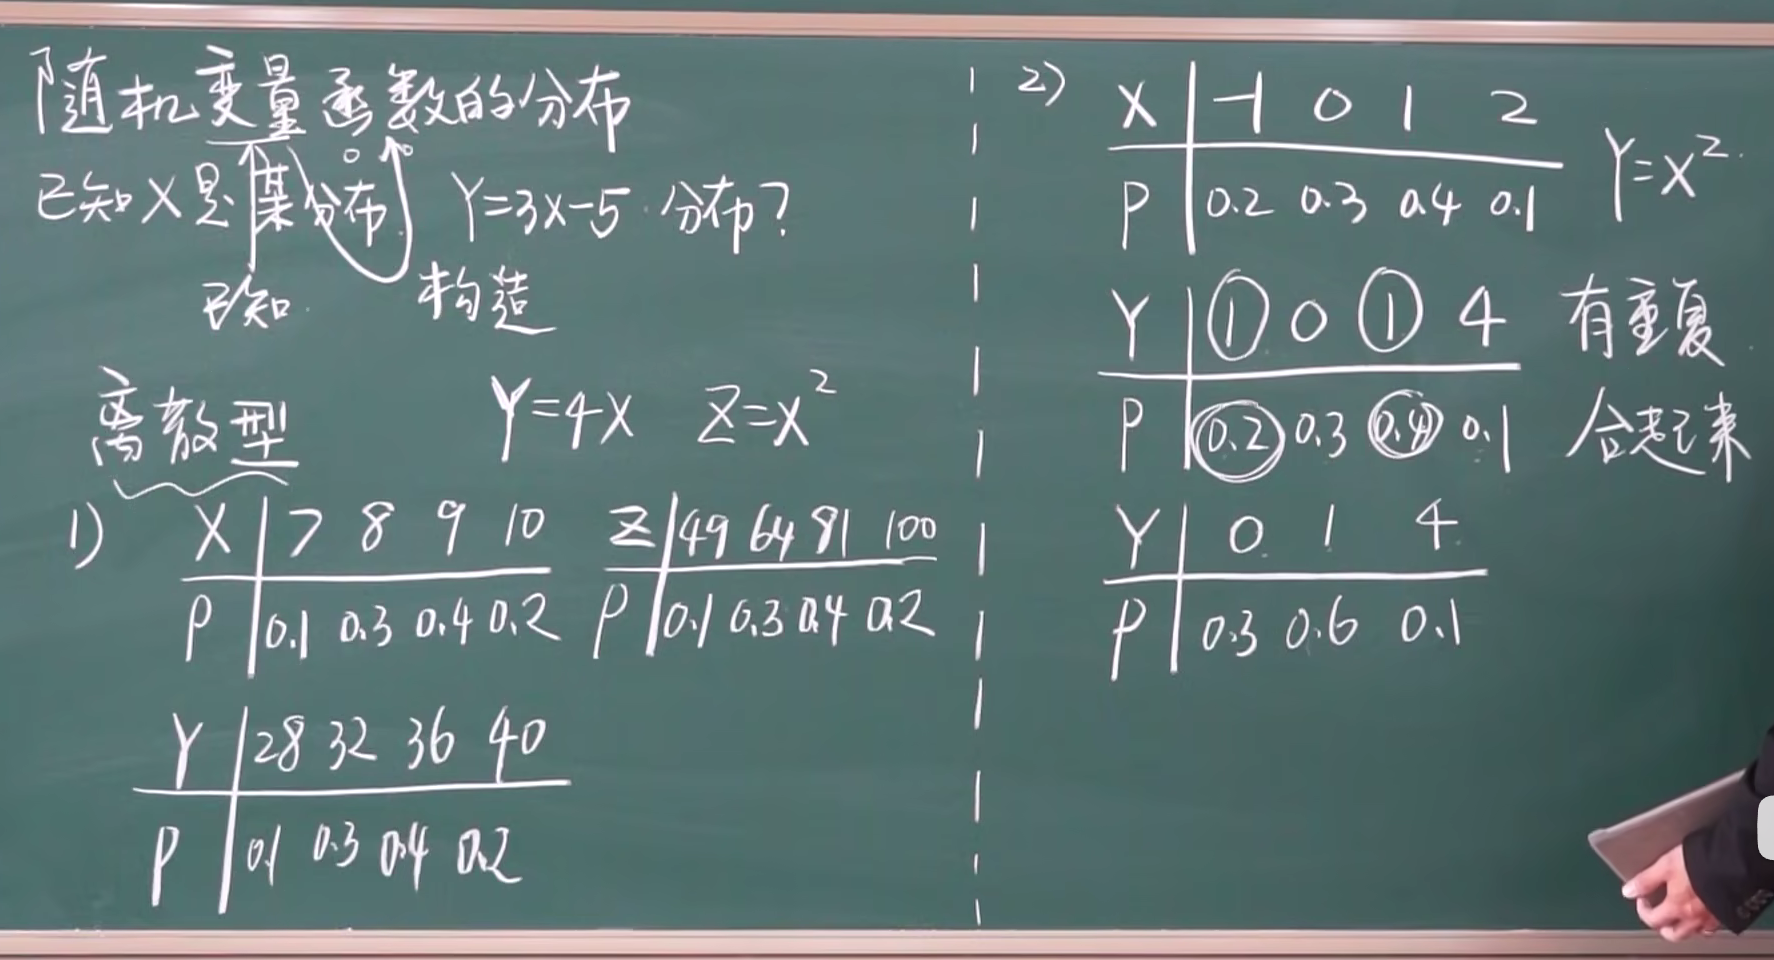 随机变量函数的分布
已知X是某分布 Y=3X-5 分布?
已知 构造
离散型 Y=4X Z=X²
1) X 7 8 9 10
P 0.1 0.3 0.4 0.2
Z 49 64 81 100
P 0.1 0.3 0.4 0.2
Y 28 32 36 40
P 0.1 0.3 0.4 0.2
2) X -1 0 1 2
P 0.2 0.3 0.4 0.1
Y=X²
Y 1 0 1 4 有重复
P 0.2 0.3 0.4 0.1 合起来
Y 0 1 4
P 0.3 0.6 0.1